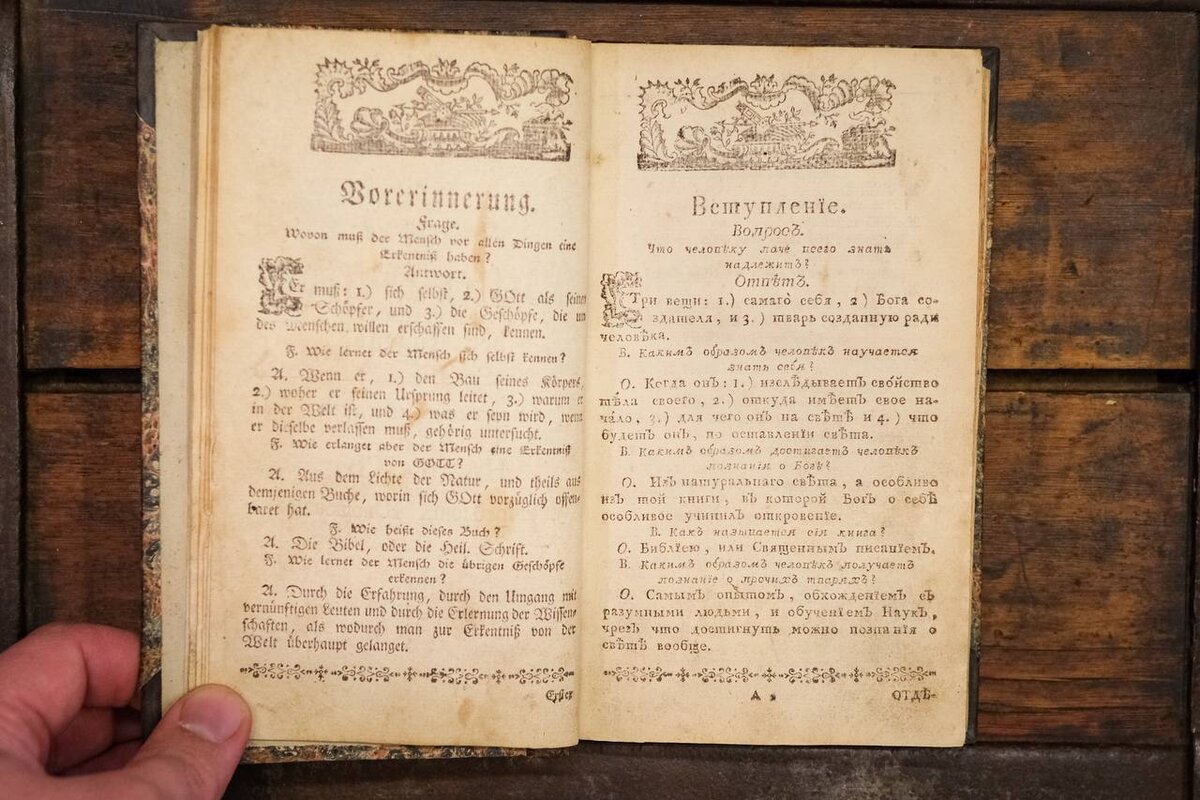 Vorerinnerung.
Frage.
Wovon muß der Mensch vor allen Dingen eine
Erkentniß haben?
Antwort.
Er muß: 1.) sich selbst, 2.) GOtt als seinen
Schöpfer, und 3.) die Geschöpfe, die um
des Menschen willen erschaffen sind, kennen.
F. Wie lernet der Mensch sich selbst kennen?
A. Wenn er, 1.) den Bau seines Körpers,
2.) woher er seinen Ursprung leitet, 3.) warum er
in der Welt ist, und 4.) was er seyn wird, wenn
er dieselbe verlassen muß, gehörig untersucht.
F. Wie erlanget aber der Mensch eine Erkentniß
von GOTT?
A. Aus dem Lichte der Natur, und theils aus
demjenigen Buche, worin sich GOtt vorzüglich offen-
baret hat.
F. Wie heißt dieses Buch?
A. Die Bibel, oder die Heil. Schrift.
F. Wie lernet der Mensch die übrigen Geschöpfe
erkennen?
A. Durch die Erfahrung, durch den Umgang mit
vernünftigen Leuten und durch die Erlernung der Wissen-
schaften, als wodurch man zur Erkentniß von der
Welt überhaupt gelanget.
Erster
Вступленїе.
Вопросъ.
Что человѣку паче всего знать
надлежитъ?
Отпѣтъ.
Три вещи: 1.) самаго себя, 2) Бога со-
здателя, и 3.) тварь созданную ради
человѣка.
В. Какимъ образомъ человѣкъ научается
знать себя?
О. Когда онъ: 1.) изслѣдываетъ свойство
тѣла своего, 2.) откуда имѣетъ свое на-
чало, 3.) для чего онъ на свѣтѣ и 4.) что
будетъ онъ, по оставленїи свѣта.
В. Какимъ образомъ достигаетъ человѣкъ
познанїя о Богѣ?
О. Изъ натуральнаго свѣта, а особливо
изъ той книги, въ которой Богъ о себѣ
особливое учинилъ откровенїе.
В. Какъ называется сїя книга?
О. Библїею, или Священнымъ писанїемъ.
В. Какимъ образомъ человѣкъ получаетъ
познанїе о прочихъ тваряхъ?
О. Самымъ опытомъ, обхожденїемъ съ
разумными людьми, и обученїемъ Наукъ,
чрезъ что достигнуть можно познанїя о
свѣтѣ вообще.
А
ОТДѢ-